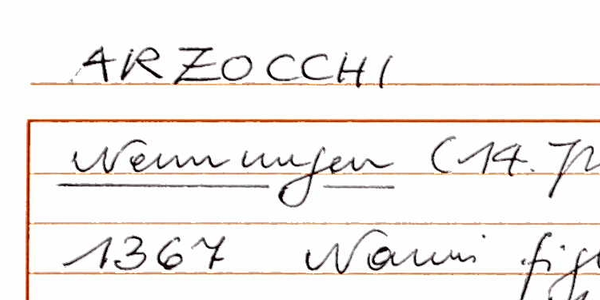 ARZOCCHI
Nennungen (14. J
1367 Nanni fig